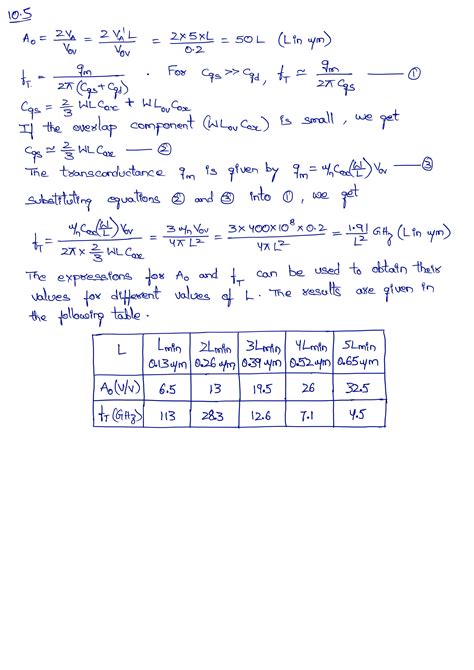 10.5
A₀ = 2V_A / V_OV = 2V_A'L / V_OV = 2×5×L / 0.2 = 50L (L in μm)
f_T = g_m / 2π(C_gs + C_gd) . For C_gs >> C_gd, f_T ≃ g_m / 2π C_gs — ①
C_gs = 2/3 WL C_ox + W L_ov C_ox
If the overlap component (W L_ov C_ox) is small, we get
C_gs ≃ 2/3 WL C_ox — ②
The transconductance g_m is given by g_m = μ_n C_ox (W/L) V_OV — ③
substituting equations ② and ③ into ①, we get
f_T = μ_n C_ox (W/L) V_OV / 2π × 2/3 WL C_ox = 3 μ_n V_OV / 4π L² = 3×400×10⁸×0.2 / 4π L² = 1.91 / L² GHz (L in μm)
The expressions for A₀ and f_T can be used to obtain their
values for different values of L. The results are given in
the following table.
L Lmin 2Lmin 3Lmin 4Lmin 5Lmin
0.13μm 0.26μm 0.39μm 0.52μm 0.65μm
A₀(V/V) 6.5 13 19.5 26 32.5
f_T(GHz) 113 28.3 12.6 7.1 4.5